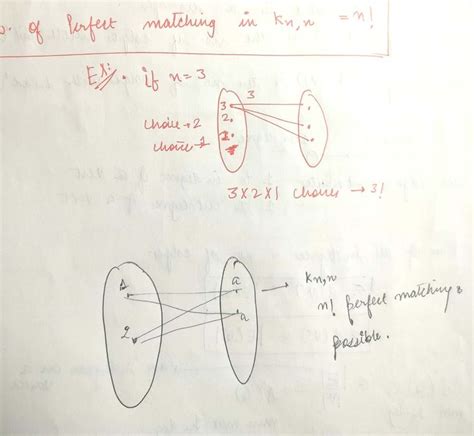 of Perfect matching in Kn,n = n!
Ex:. if n = 3
3
3
2.
1.
choice → 2
choice → 1
3×2×1 choice → 3!
1
a
2
a
→ Kn,n
n! perfect matchings
possible.